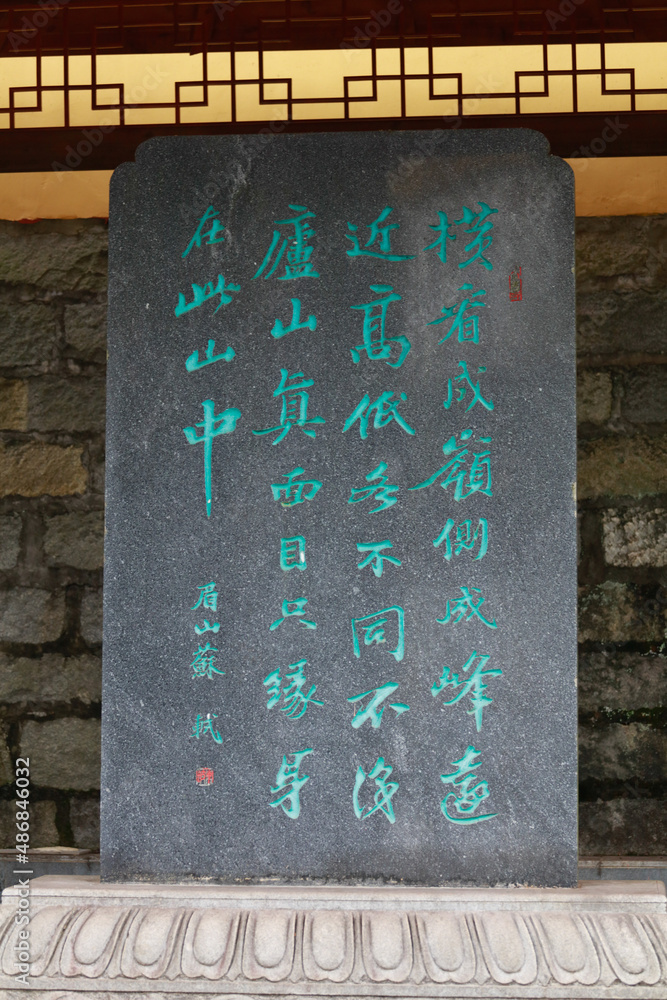 橫看成嶺側成峰遠
近高低各不同不識
廬山眞面目只緣身
在此山中
眉山蘇軾
Adobe Stock | #486846032